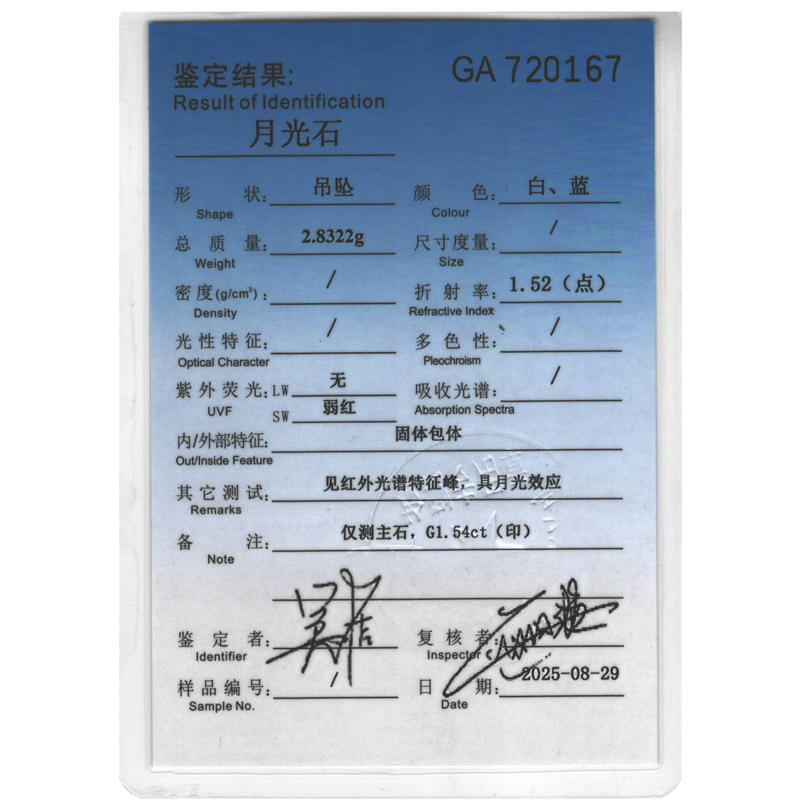 鉴定结果: GA 720167
Result of Identification
月光石
形 状: 吊坠 颜 色: 白、蓝
Shape Colour
总 质 量: 2.8322g 尺寸度量: /
Weight Size
密 度(g/cm³): / 折 射 率: 1.52（点）
Density Refractive Index
光性特征: / 多 色 性: /
Optical Character Pleochroism
紫外荧光: LW 无 吸收光谱: /
UVF SW 弱红 Absorption Spectra
内/外部特征: 固体包体
Out/Inside Feature
其它测试: 见红外光谱特征峰，具月光效应
Remarks
备 注: 仅测主石，G1.54ct（印）
Note
鉴 定 者: 复 核 者:
Identifier Inspector
样品编号: / 日 期: 2025-08-29
Sample No. Date